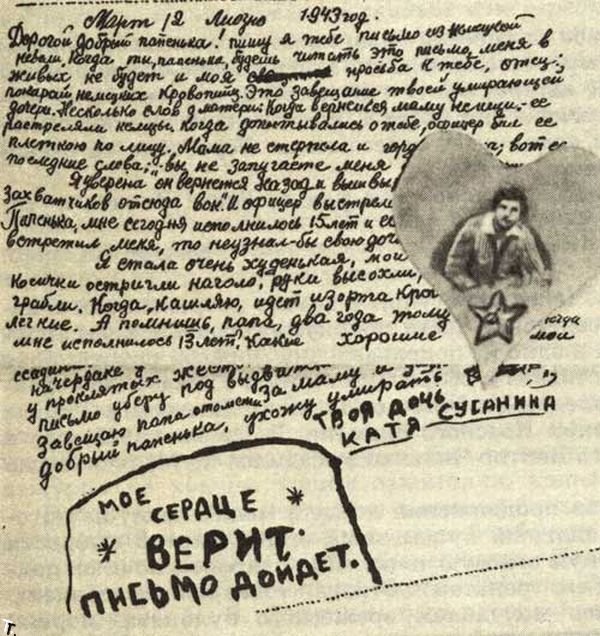 Март 12 Лиозно 1943 год.
Дорогой добрый папенька! пишу я тебе письмо из немецкой
неволи. Когда ты, папенька, будешь читать это письмо, меня в
живых не будет и моя просьба к тебе, отец:
покарай немецких кровопийц. Это завещание твоей умирающей
дочери. Несколько слов о матери. Когда вернешься маму не ищи. ее
растреляли немцы. Когда допытывались о тебе, офицер бил ее
плеткою по лицу. Мама не стерпела и горд вот ее
последние слова: "вы не запугаете меня
Я уверена он вернется назад и вышвыр
захватчиков отсюда вон. И офицер выстрели
Папенька, мне сегодня исполнилось 15 лет и ес
встретил меня, то неузнал-бы свою доч
Я стала очень худенькая, мои
Косички остригли наголо, руки высохли,
грабли. Когда кашляю, идет изорта кро
легкие. А помнишь, папа, два года тому когда
мне исполнилось 13 лет, Какие хорошие мои
на чердаке
у проклятых жест
письмо уберу под выд
Завещаю папа отомсти за маму и
добрый папенька, ухожу умирать
твоя дочь
Катя Сусанина
МОЕ
СЕРДЦЕ
ВЕРИТ.
ПИСЬМО ДОЙДЕТ.